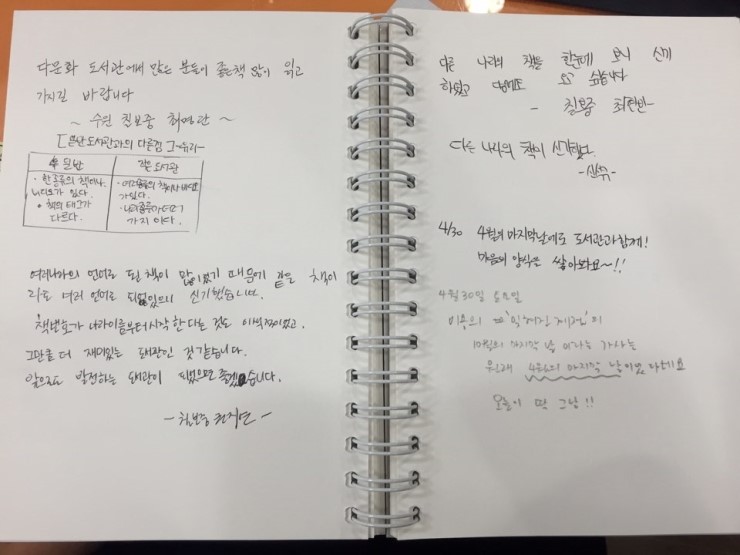 다문화 도서관에서 많은 분들이 좋은책 많이 읽고
가시길 바랍니다
~ 수원 칠보중 최연관 ~
도서관과의 다른점
작은 도서관
· 한종류의 책이나
가 있다.
· 책의 태그가
다르다.
가 있다.
가지 이다.
여러나라의 언어로 된 책이 많이있기 때문에 같은 책이
라도 여러 언어로 되어있으니 신기했습니다.
책번호가 나라이름부터시작한다는 것도 이색적이었고,
그만큼 더 재미있는 도서관인 것 같습니다.
앞으로도 발전하는 도서관이 되었으면 좋겠습니다.
- 칠보중 -
다른 나라의 책을 한눈에 보니 신기
하였고 다음에도 오고 싶습니다
- 칠보중 최현빈 -
다른 나라의 책이 신기했다.
4/30 4월의 마지막날에도 도서관과함께!
마음의 양식을 쌓아봐요~!!
4월 30일 토요일
이용의 "잊혀진 계절"의
10월의 마지막 날 이라는 가사는
원래 4월의 마지막 날이었다네요
오늘이 딱 그날!!